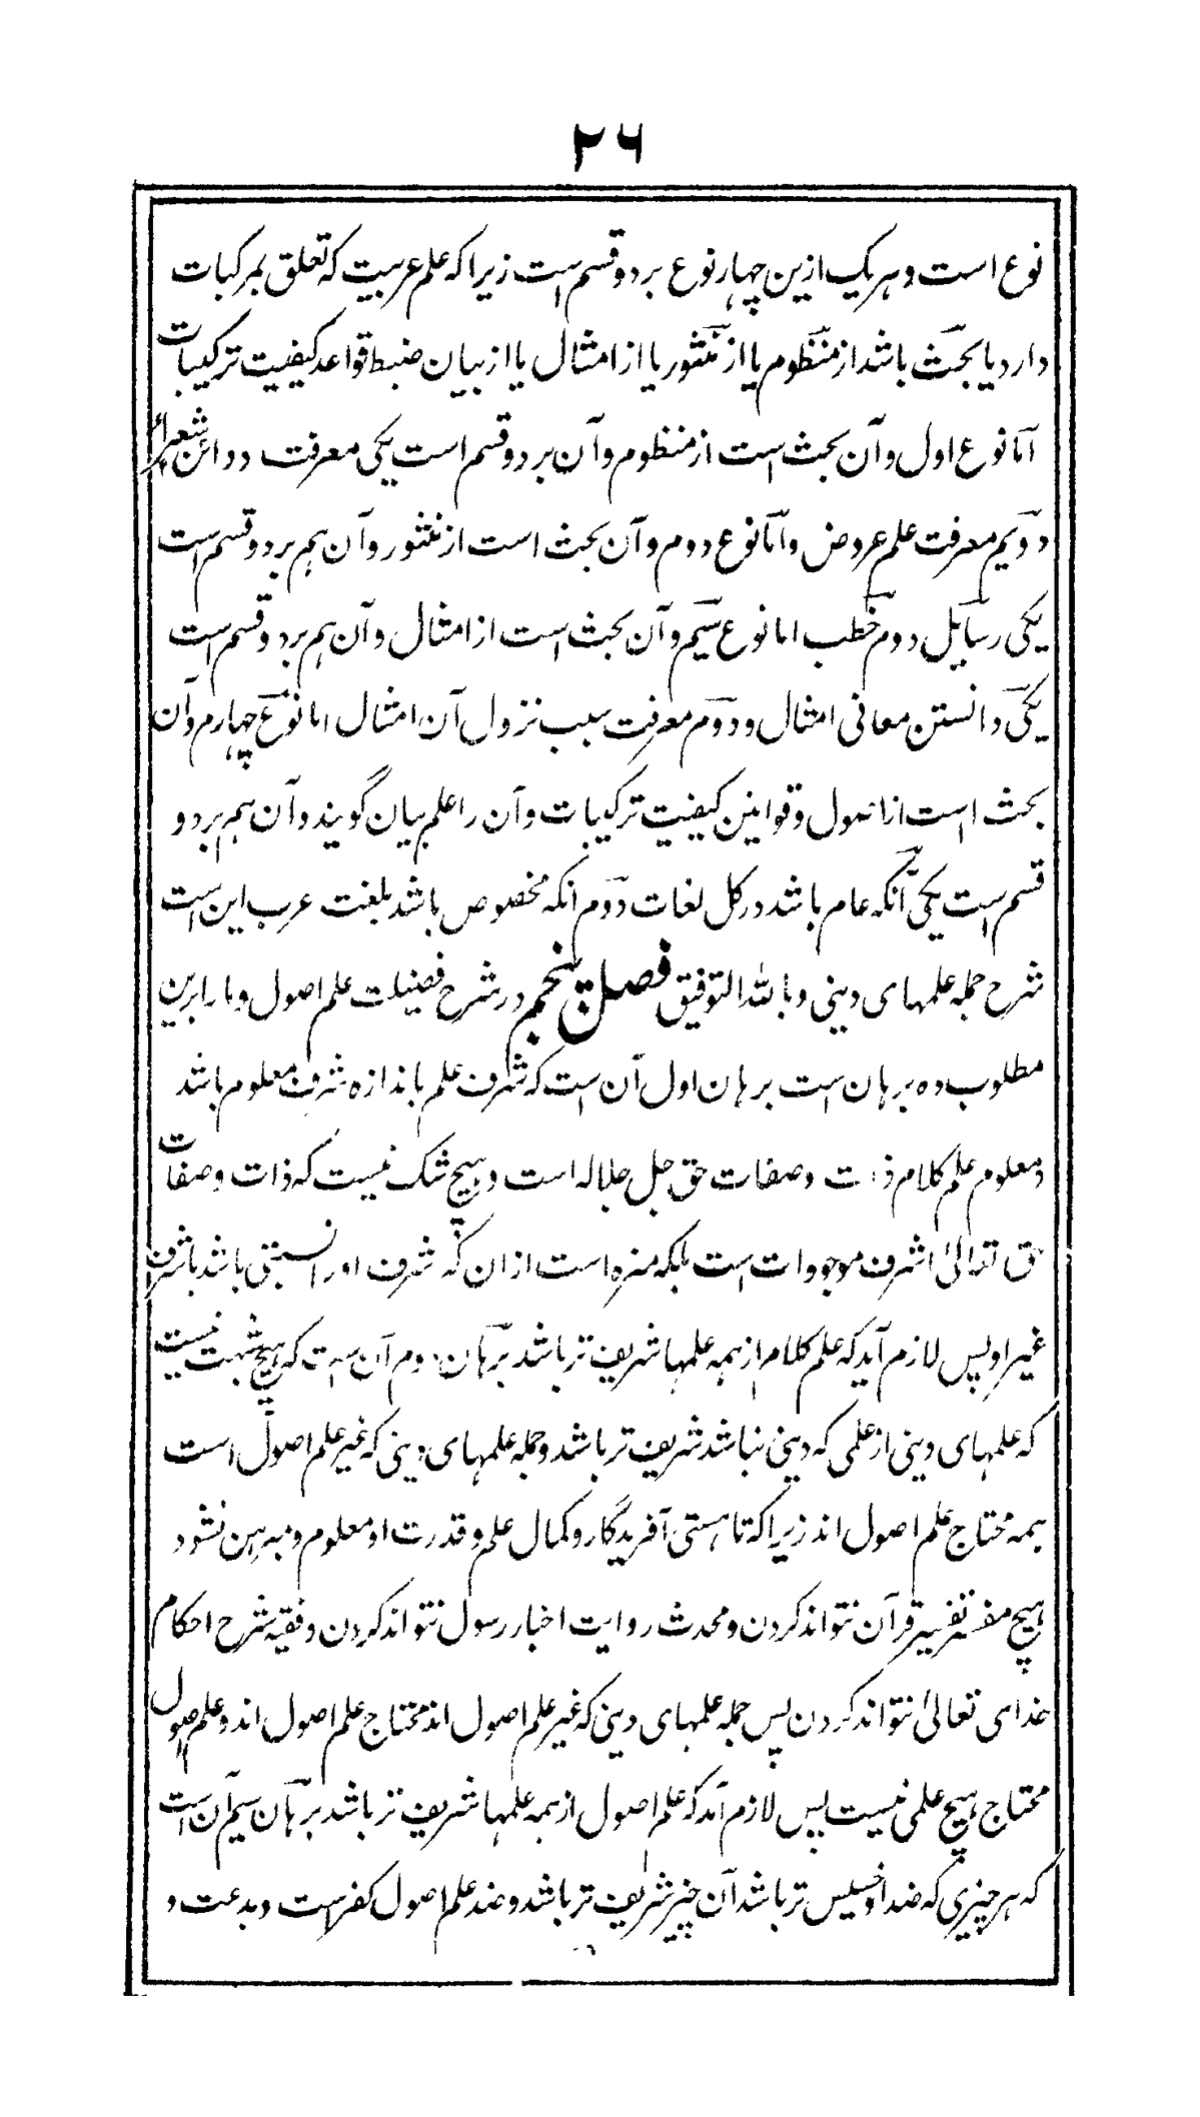 ۲۶
نوع است و هریک ازین چهار نوع بر دو قسم است زیرا که علم عربیت که تعلق بمرکبات
دارد یا بحث باشد از منظوم یا از منثور یا از امثال یا از بیان ضبط قواعد کیفیت ترکیبات
اما نوع اول و آن بحث است از منظوم و آن بر دو قسم است یکی معرفت دواوین شعرا
دویم معرفت علم عروض و اما نوع دوم و آن بحث است از منثور و آن هم بر دو قسم است
یکی رسایل دوم خطب اما نوع سیم و آن بحث است از امثال و آن هم بر دو قسم است
یکی دانستن معانی امثال و دوم معرفت سبب نزول آن امثال اما نوع چهارم و آن
بحث است از اصول و قوانین کیفیت ترکیبات و آن را علم بیان گویند و آن هم بر دو
قسم است یکی آنکه عام باشد در کل لغات دوم آنکه مخصوص باشد بلغت عرب این است
شرح جمله علمهای دینی و بالله التوفیق فصل پنجم در شرح فضیلت علم اصول و ما را برین
مطلوب ده برهان است برهان اول آن است که شرف علم باندازه شرف معلوم باشد
و معلوم علم کلام ذات و صفات حق جل جلاله است و هیچ شک نیست که ذات و صفات
حق تعالیٰ اشرف موجودات است بلکه منزه است از ان که شرف او را نسبتی باشد باشرف
غیر او پس لازم آید که علم کلام از همه علمها شریف تر باشد برهان دوم آن است که هیچ شبهت نیست
که علمهای دینی از علمی که دینی نباشد شریف تر باشد و جمله علمهای دینی که غیر علم اصول است
همه محتاج علم اصول اند زیرا که تا هستی آفریدگار و کمال علم و قدرت او معلوم و مبرهن نشود
هیچ مفسر تفسیر قرآن نتواند کردن و محدث روایت اخبار رسول نتواند کردن و فقیه شرح احکام
خدای تعالیٰ نتواند کردن پس جمله علمهای دینی که غیر علم اصول اند محتاج علم اصول اند و علم اصول
محتاج هیچ علمی نیست پس لازم آمد که علم اصول از همه علمها شریف تر باشد برهان سیم آن است
که هر چیزی که ضد او خسیس تر باشد آن چیز شریف تر باشد و ضد علم اصول کفرست و بدعت و